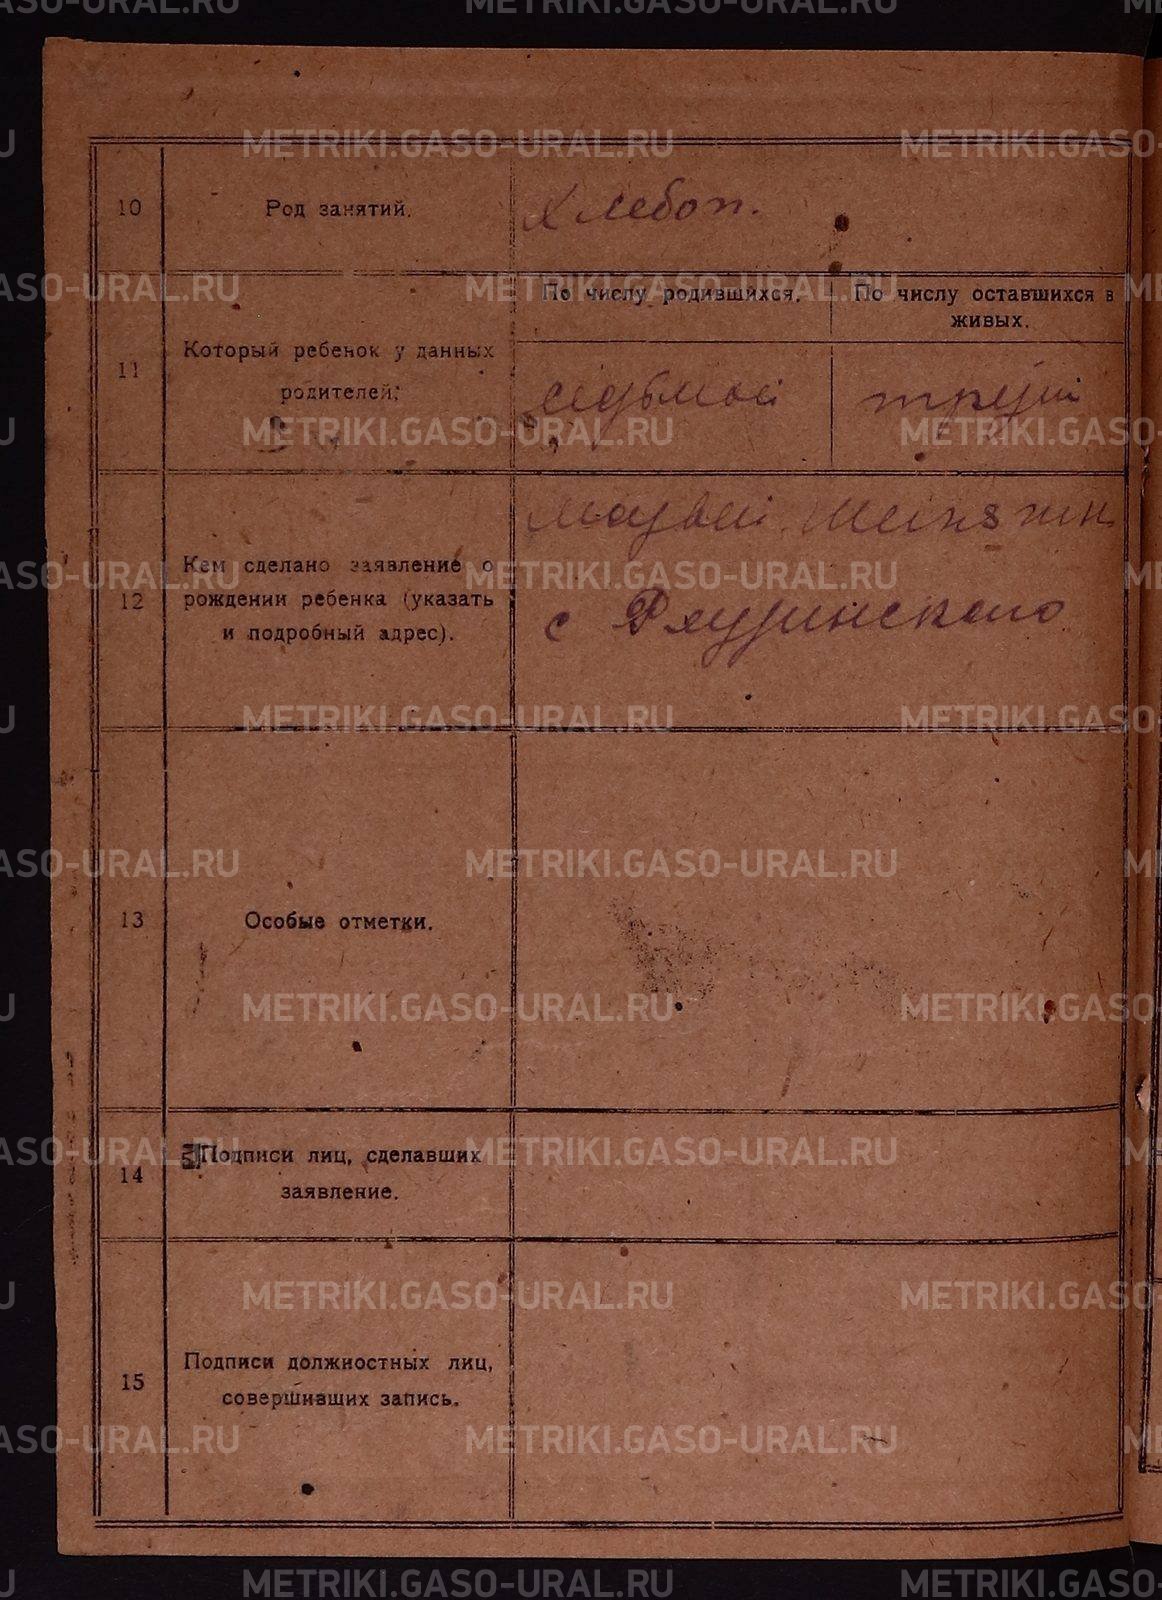 METRIKI.GASO-URAL.RU
10
Род занятий.
Хлебоп.
11
Который ребенок у данных
родителей:
По числу родившихся.
По числу оставшихся в
живых.
седьмой
третий
12
Кем сделано заявление о
рождении ребенка (указать
и подробный адрес).
Матвей
с
13
Особые отметки.
14
Подписи лиц, сделавших
заявление.
15
Подписи должностных лиц,
совершивших запись.